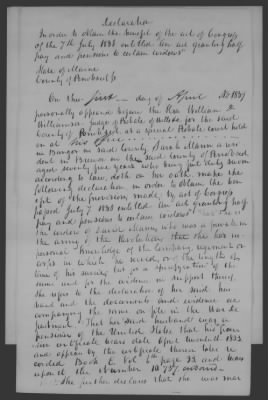 Declaration
In order to obtain the benefit of the act of Congress
of the 7th July 1838 entitled "An act granting half
pay and pensions to certain widows"
State of Maine
County of Penobscot ss
On this first day of April AD 1839
personally appeared before the Hon William D
Williamson Judge of Probate of Wills &c for the said
County of Penobscot at a special Probate Court held
in
at Bangor in said County Sarah Mann a resi
dent in in the said County of Penobscot
aged seventy five years who being first duly sworn
according to law, doth on her oath, make the
following declaration in order to obtain the ben
efit of the provision made by act of Congress
passed July 7 1838 entitled "An act granting half
pay and pensions to certain widows" that she is
the widow of Mann who was a private in
the army of the Revolution that she has no
personal knowledge of the Company, regiment or
corps in which he served, or of the length of
time of his service but for a specification of the
same and for the evidence in support thereof
she refers to the declaration of her said hus
band and the documents and evidence ac
companying the same on file in the War De
partment. That her said husband was a
pensioner of the United States that his pen
sion certificate bears date
and appears by the certificate thereto to be re
corded Book E. Vol 6 page 22 and was
upon it the number
She further declares that she was mar